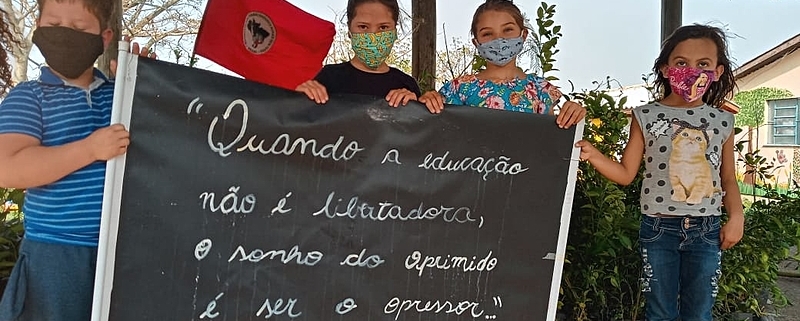 "Quando a educação
não é libertadora,
o sonho do oprimido
é ser o opressor..."